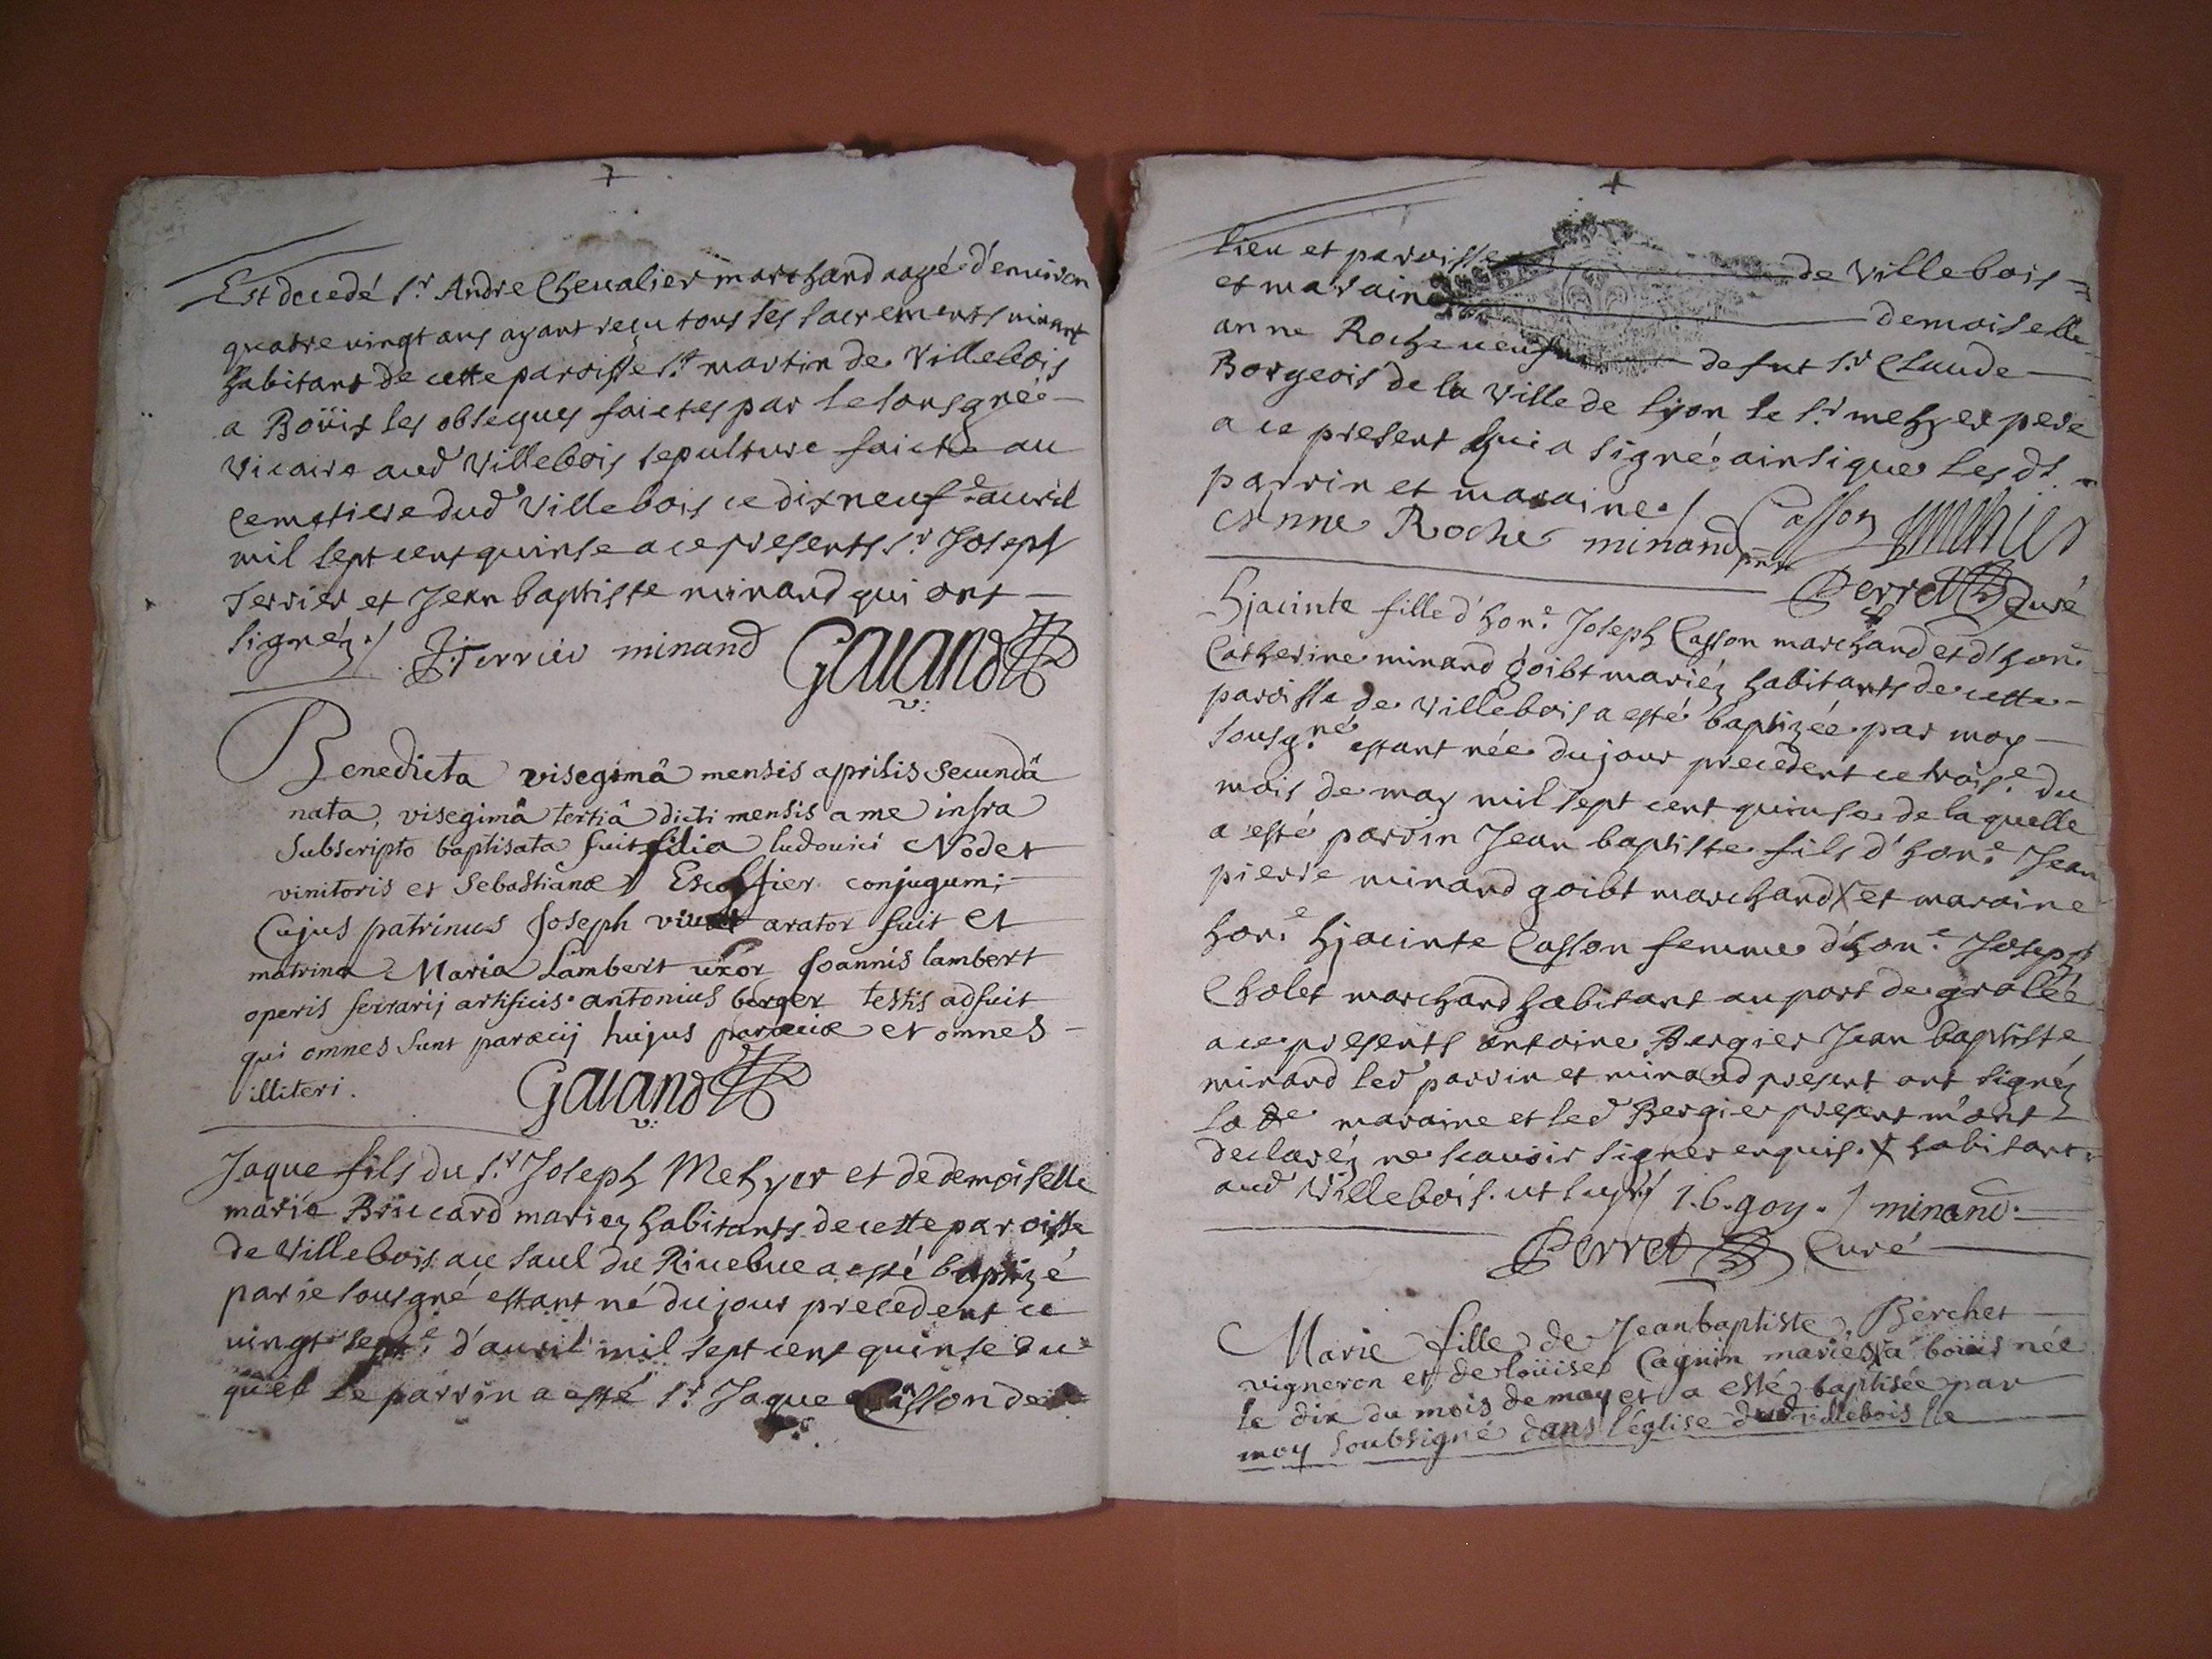 Est decedé Sr. Andre Chevalier marchand aagé d'environ
quatre vingt ans ayant reçu tous les sacrements vivant
habitant de cette paroisse St. martin de Villebois
a Boüis les obseques faictes par le sousgné
Vicaire aud Villebois sepulture faicte au
cemetiere dud Villebois ce dixneuf e. auvril
mil sept cent quinse a ce presents Sr. Joseph
Terrier et Jean baptiste minand qui ont
signéz./ J: Terrier minand Gaiand
v:
Benedicta visegimâ mensis aprilis secundâ
nata, visegimâ tertiâ dicti mensis a me infra
Subscripto baptisata fuit filia ludovici Nodet
vinitoris et Sebastianæ Escoffier conjugum;
Cujus patrinus Joseph arator fuit et
matrina Maria Lambert uxor Joannis lambert
operis ferrarij artificis. antonius berger testis adfuit
qui omnes sunt paræcij hujus paræciæ et omnes
illiteri. Gaiand
v:
Jaque fils du Sr. Joseph Mehyer et de demoiselle
marie Bruccard mariez habitants de cette paroisse
de Villebois au Saul du Rivebue a esté baptizé
par je sousgné estant né du jour precedent ce
vingt sept e. d'auvril mil sept cent quinse du
quel le parrin a esté Sr. Jaque Casson de
lieu et paroisse de Villebois
et maraine demoiselle
anne Roche defut Sr. Claude
Borgeois de la Ville de Lyon le Sr. mehyer pere
a ce present qui a signé ainsi que les ds.
parrin et maraine./ Casson
Anne Roche minand pnt
Perret Curé
Hjacinte fille d'hone. Joseph Casson marchand et d'hone.
Catherine minand goibt mariéz habitants de cette
paroisse de Villebois a esté baptizée par moy
sousgné. estant née du jour precedent ce troise. du
mois de may mil sept cent quinse de laquelle
a esté parrin Jean baptiste fils d'hone. Jean
pierre minand goibt marchand X et maraine
hone. Hjacinte Casson femme d'hone. Joseph
Cholet marchand habitant au port de grolée
a ce presents antoine Bergier Jean baptiste
minand led parrin et minand present ont signéz
la de maraine et led Bergier present m'ont
declaréz ne scavoir signer enquis. X habitant
aud Villebois. ut sup./ J. b. goy. / minand.
Perret Curé
Marie fille de Jean baptiste Berchet
vigneron et de loüise Cagnin mariés a boüis née
le dix du mois de may et a esté baptisée par
moy soubsigné dans l'église dud villebois le